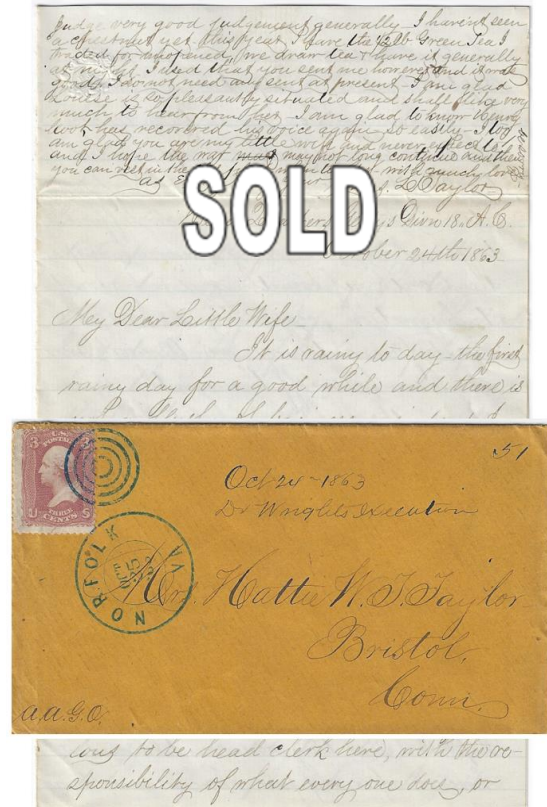 Judge very good Judgement generally I havent seen
a chestnut yet this year I have the 1/2 lb Green Tea I
traded for unopened we draw tea & have it generally
at night I used that you sent me however and it was
good. I do not need any sent at present I am glad
Louise is so pleasantly situated and shall like very
much to hear from her I am glad to know Henry
has recovered his voice again so easily I too
am glad you are my little wife and never expect to
and I hope the war may not long continue and then
you can rest in the with much love
as S. L. Taylor
Divn 18. A.C.
October 24th 1863
SOLD
My Dear Little Wife
It is rainy to day the first
rainy day for a good while and there is
51
3 U.S. 3
POSTAGE
THREE
U CENTS S
Oct 24 - 1863
Dr Wrights execution
NORFOLK VA
OCT
25
Mrs. Hattie W. T. Taylor
Bristol,
Conn.
a.a.g.o.
to be head clerk here, with the re-
sponsibility of what every one does, or